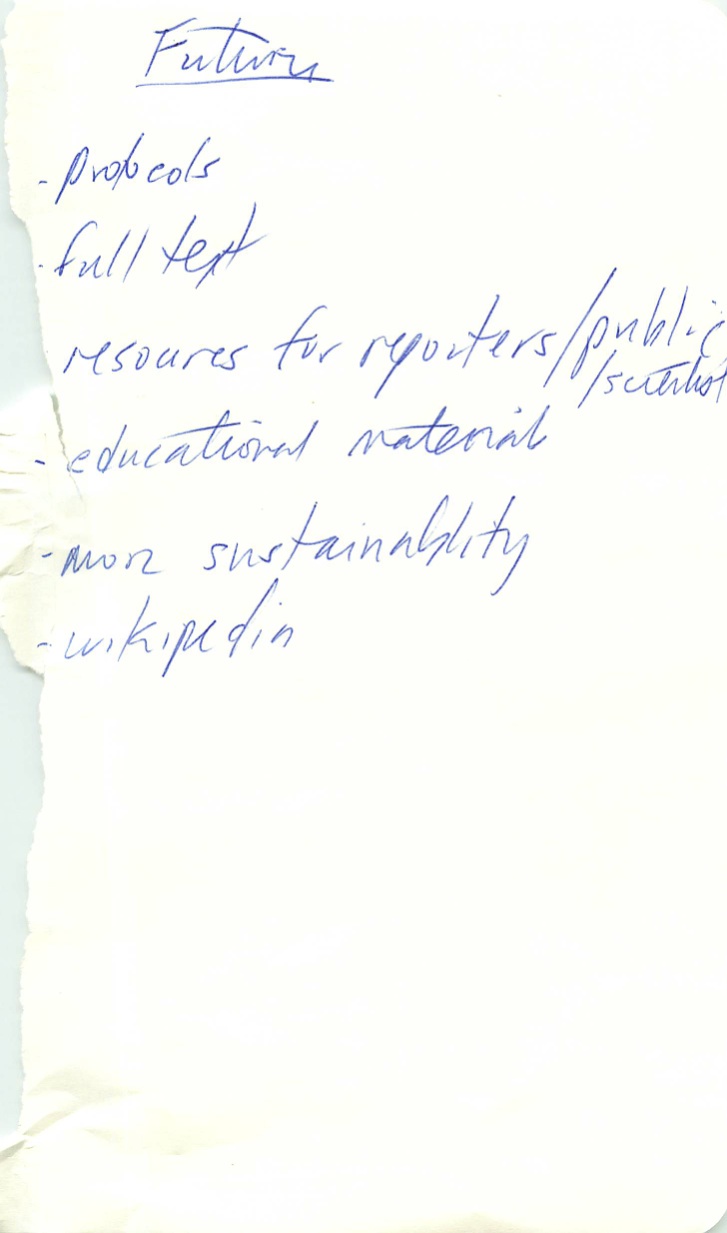 Future
- protocols
- full text
resources for reporters/public
/scientist
- educational material
- more sustainability
- wikipedia